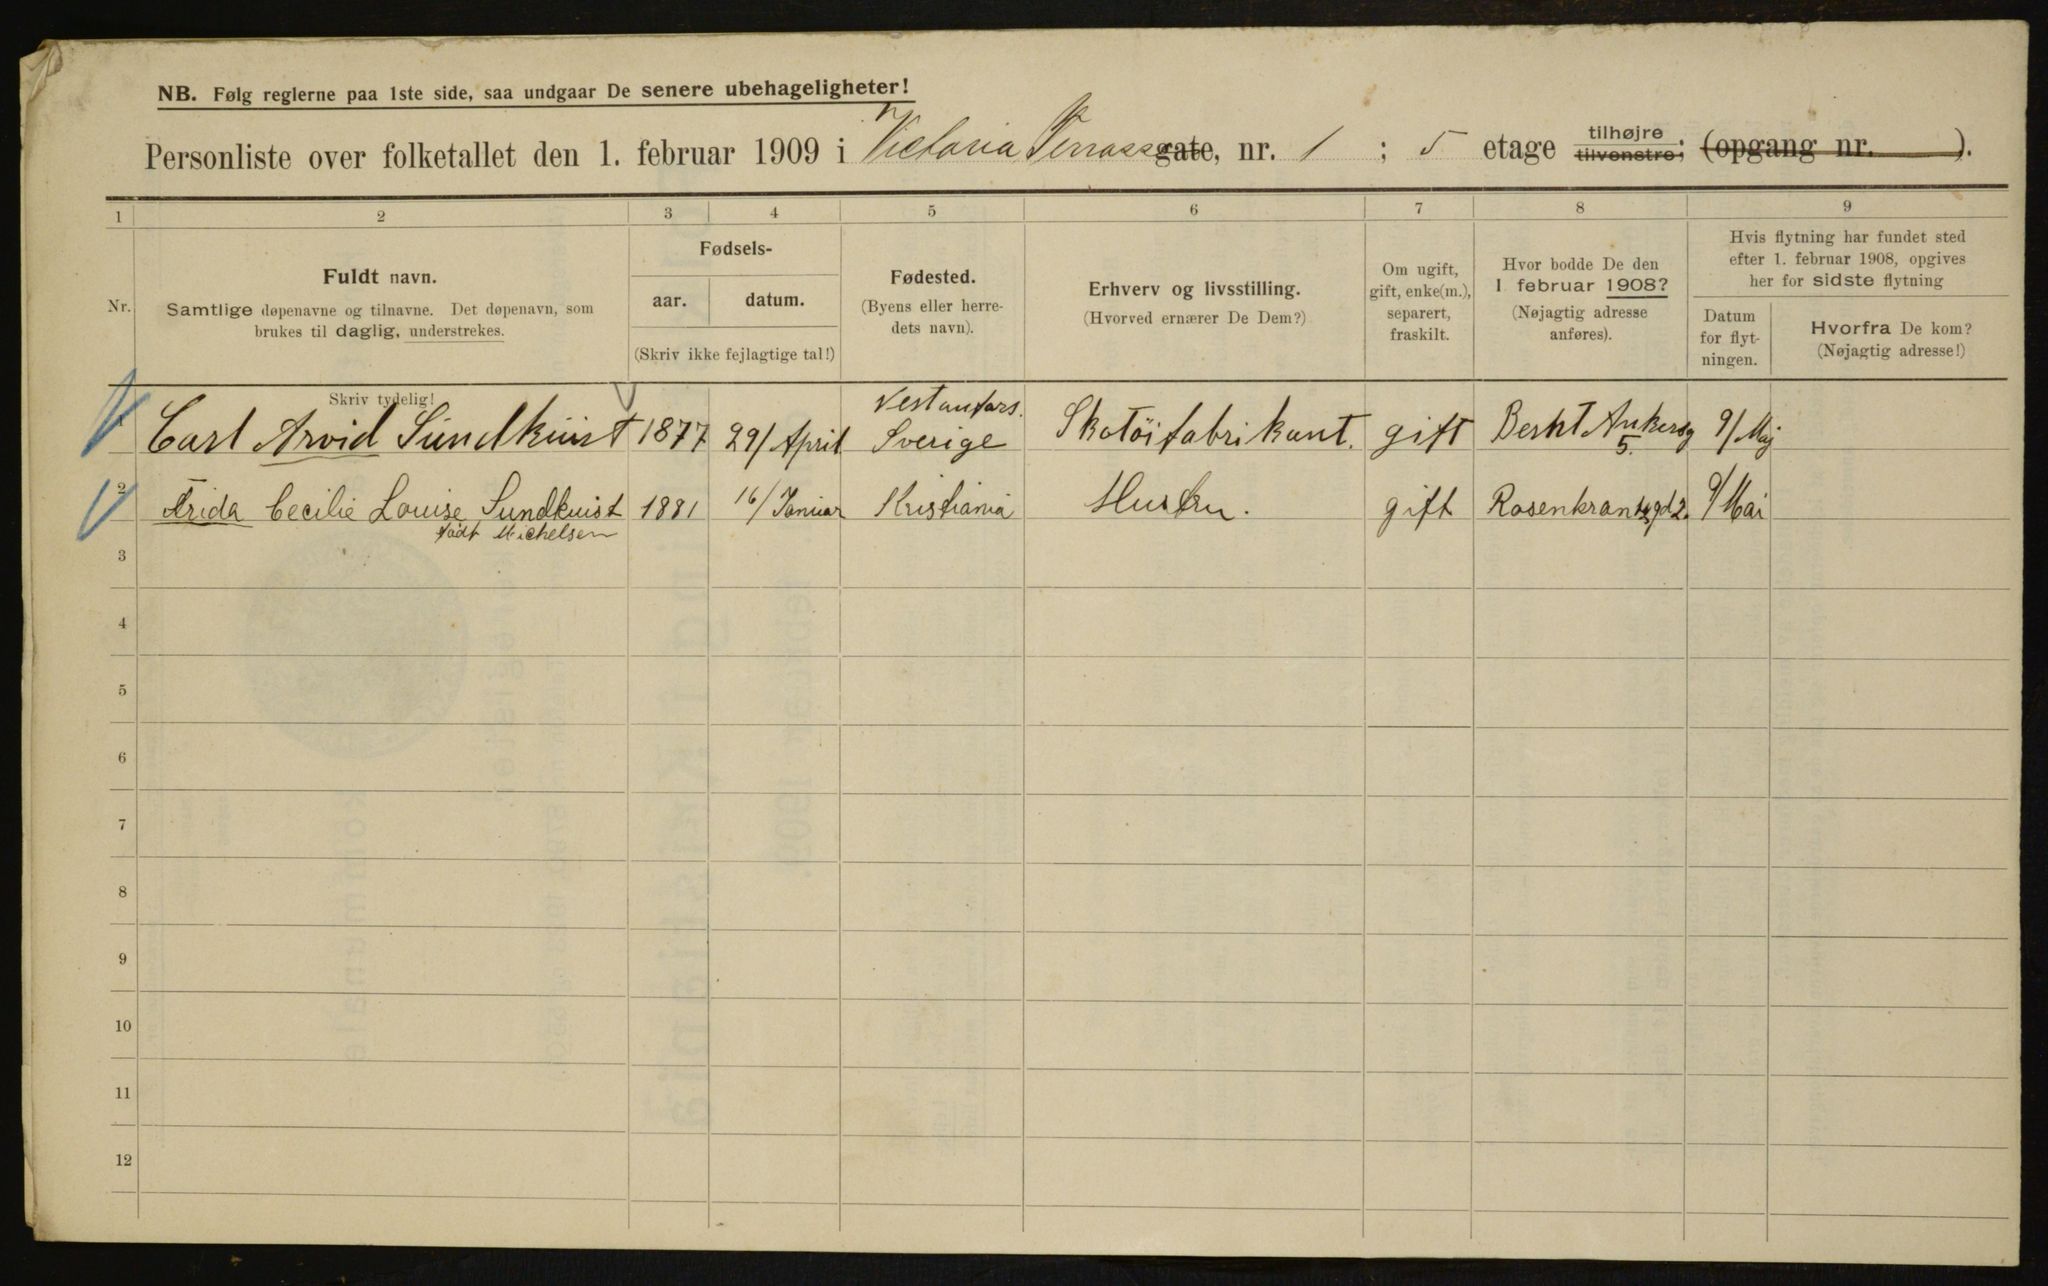 NB. Følg reglerne paa 1ste side, saa undgaar De senere ubehageligheter!
Personliste over folketallet den 1. februar 1909 i Victoria Terrassegate, nr. 1 ; 5 etage tilhøjre tilvenstre; (opgang nr. ).
1 2 3 4 5 6 7 8 9
Nr.
Fuldt navn.
Samtlige døpenavne og tilnavne. Det døpenavn, som
brukes til daglig, understrekes.
Skriv tydelig!
Fødsels-
aar. datum.
(Skriv ikke fejlagtige tal!)
Fødested.
(Byens eller herre-
dets navn).
Erhverv og livsstilling.
(Hvorved ernærer De Dem?)
Om ugift,
gift, enke(m.),
separert,
fraskilt.
Hvor bodde De den
1 februar 1908?
(Nøjagtig adresse
anføres).
Hvis flytning har fundet sted
efter 1. februar 1908, opgives
her for sidste flytning
Datum
for flyt-
ningen.
Hvorfra De kom?
(Nøjagtig adresse!)
Vestanfors.
Carl Arvid Sundkuist 1877 29/ April Sverige Skotöifabrikant. gift Bernt Ankersg 9/ Maj
5.
2 Frida Cecilie Louise Sundkuist 1881 16/ Januar Kristiania Hustru. gift Rosenkrantzgd 2. 9/ Mai
født Michelsen
3
4
5
6
7
8
9
10
11
12